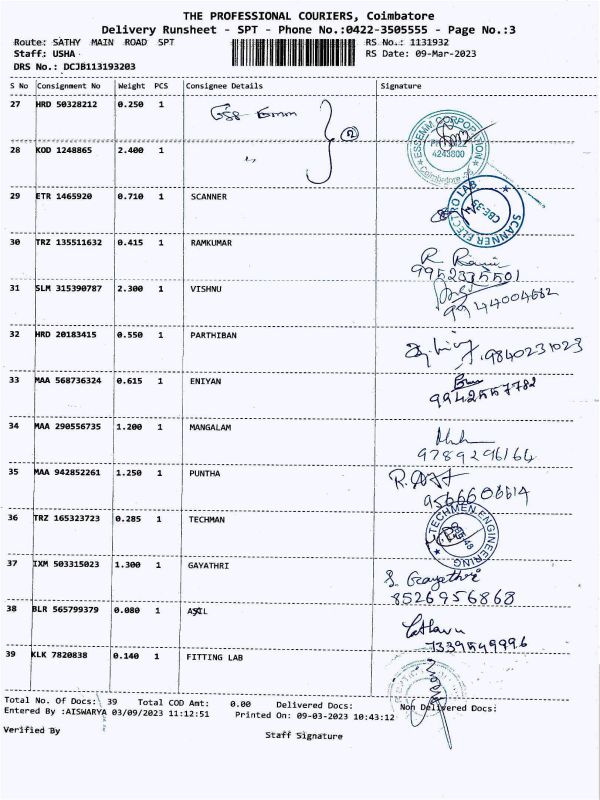 THE PROFESSIONAL COURIERS, Coimbatore
Delivery Runsheet - SPT - Phone No.:0422-3505555 - Page No.:3
Route: SATHY MAIN ROAD SPT RS No.: 1131932
Staff: USHA RS Date: 09-Mar-2023
DRS No.: DCJB113193203
S No Consignment No Weight PCS Consignee Details Signature
27 HRD 50328212 0.250 1
ESSENMM CORPORATION
4243800
Coimbatore
28 KOD 1248865 2.400 1
29 ETR 1465920 0.710 1 SCANNER
SCANNER ELECTRO LAB
CBE-33
30 TRZ 135511632 0.415 1 RAMKUMAR
9952335501
31 SLM 315390787 2.300 1 VISHNU
9944004682
32 HRD 20183415 0.550 1 PARTHIBAN
9840231023
33 MAA 568736324 0.615 1 ENIYAN
9942557782
34 MAA 290556735 1.200 1 MANGALAM
9789296164
35 MAA 942852261 1.250 1 PUNTHA
9566606614
36 TRZ 165323723 0.285 1 TECHMAN
TECHMEN ENGINEERING
37 IXM 503315023 1.300 1 GAYATHRI
S. Gayathri
8526956868
38 BLR 565799379 0.080 1
7339549996
39 KLK 7820838 0.140 1 FITTING LAB
Total No. Of Docs: 39 Total COD Amt: 0.00 Delivered Docs: Non Delivered Docs:
Entered By :AISWARYA 03/09/2023 11:12:51 Printed On: 09-03-2023 10:43:12
Verified By Staff Signature